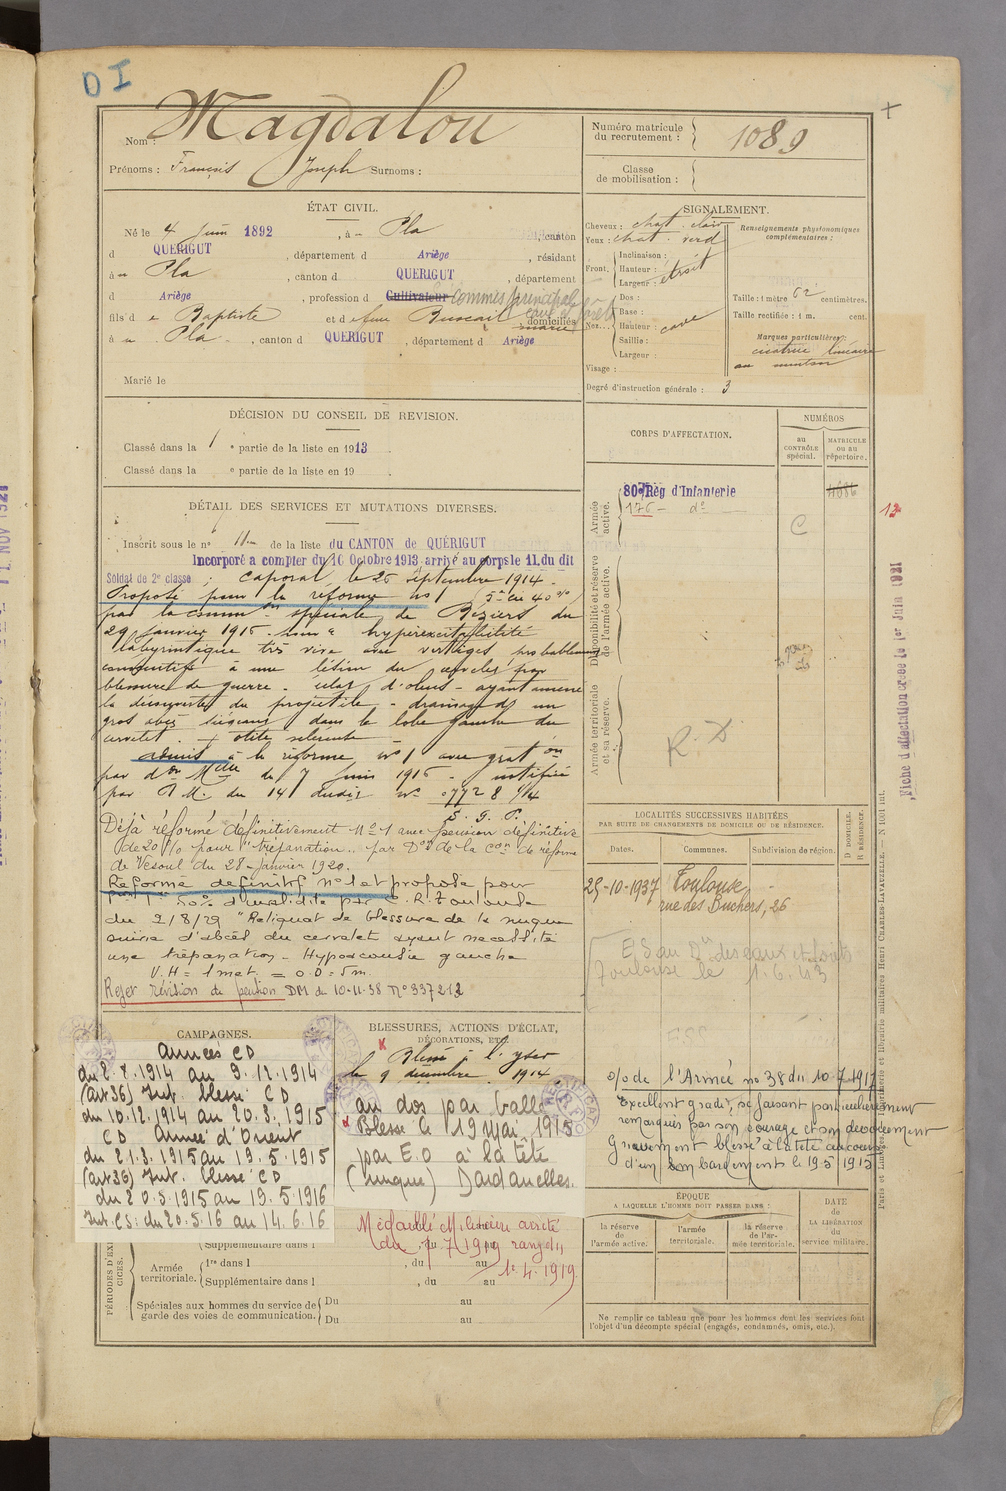 D I
Magdalou
Nom :
Prénoms : François Joseph Surnoms :
Numéro matricule du recrutement : 1089
Classe de mobilisation :
ÉTAT CIVIL.
Né le 4 Juin 1892, à Pla, canton
d QUERIGUT, département d Ariège, résidant
à Pla, canton d QUERIGUT, département
d Ariège, profession d Cultivateur commis principal
eaux et forêts
fils d e Baptiste et d e feue Buscail domiciliés
marié
à Pla, canton d QUERIGUT, département d Ariège
Marié le
SIGNALEMENT.
Cheveux : chat. clair
Yeux : chat. verd
Front. Inclinaison :
Hauteur :
Largeur : étroit
Nez. Dos :
Base :
Hauteur : cave
Saillie :
Largeur :
Visage :
Renseignements physionomiques complémentaires :
Taille : 1 mètre 62 centimètres.
Taille rectifiée : 1 m. cent.
Marques particulières :
cicatrice linéaire
au menton
Degré d'instruction générale : 3
DÉCISION DU CONSEIL DE REVISION.
Classé dans la 1 e partie de la liste en 1913
Classé dans la e partie de la liste en 19
DÉTAIL DES SERVICES ET MUTATIONS DIVERSES.
Inscrit sous le n° 11 de la liste du CANTON de QUÉRIGUT
Incorporé a compter du 10 Octobre 1913 arrivé au corps le 11 du dit
Soldat de 2e classe ; caporal le 25 septembre 1914 -
Proposé pour la réforme n° 1 5e cie 40 %
par la comm on spéciale de Béziers du
29 Janvier 1916 - pour hyperexcitabilité
labyrintique très vive avec vertiges probablement
consécutifs à une lésion du cervelet par
blessure de guerre - éclat d'obus - ayant amené
la découverte du projectile - drainage d'un
gros abcès siégeant dans le lobe gauche du
cervelet - + otite scléreuse
admis à la réforme n° 1 avec grat on
par d on Mlle du 7 Juin 1916 - notifiée
par P.M. du 14 dudit n° 7728 1/4
S. G. P.
Déjà réformé définitivement N° 1 avec pension définitive
de 20 % pour "trépanation" par Don de la Con de réforme
de Vesoul du 28 Janvier 1920.
Réformé définitif n° 1 et proposé pour
50% d'invalidité par C. R. Toulouse
du 2/8/29 "Reliquat de blessure de la nuque
suivie d'abcès du cervelet ayant nécessité
une trépanation - Hypoacousie gauche
V.H = 1 met. = O.D = 5 m.
Rejet révision de pension DM du 10-11-38 N° 337212
CORPS D'AFFECTATION.
NUMÉROS
au CONTRÔLE spécial.
MATRICULE ou au répertoire.
Armée active.
80e Rég d'Infanterie
176 - d°
4686
C
Disponibilité et réserve de l'armée active.
Armée territoriale et sa réserve.
R. D
12
Fiche d'affectation créée le 1er Juin 1921
LOCALITÉS SUCCESSIVES HABITÉES
PAR SUITE DE CHANGEMENTS DE DOMICILE OU DE RÉSIDENCE.
Dates. Communes. Subdivision de région. D DOMICILE. R RÉSIDENCE.
25-10-1937 Toulouse
rue des Buchers, 26
ES au Don des eaux et forêts
Toulouse le 1.6.43
CAMPAGNES.
Années CD
du 2.8.1914 au 9.12.1914
(art 36) Int. blessé CD
du 10.12.1914 au 20.3.1915
CD Armée d'Orient
du 21.3.1915 au 19.5.1915
(art 36) Int. blessé CD
du 20.5.1915 au 19.5.1916
Int. CS : du 20.5.16 au 14.6.16
BLESSURES, ACTIONS D'ÉCLAT, DÉCORATIONS, ETC.
Blessé à l'yser
le 9 décembre 1914
au dos par balle
Blessé le 19 mai 1915
par E.O à la tête
(nuque) Dardanelles.
Médaillé Militaire arrêté
du 7 1919 rang du
1. 4. 1919
o/o de l'Armée no 38 du 10-7-1917
Excellent gradé, se faisant particulièrement
remarqué par son courage et son dévouement
Gravement blessé à la tête au cours
d'un bombardement le 19-5-1915
PÉRIODES D'EXERCICES.
Supplémentaire dans l
Armée territoriale. 1re dans l , du au
Supplémentaire dans l , du au
Spéciales aux hommes du service de garde des voies de communication. Du au
Du au
ÉPOQUE
A LAQUELLE L'HOMME DOIT PASSER DANS :
la réserve de l'armée active.
l'armée territoriale.
la réserve de l'armée territoriale.
DATE DE LA LIBÉRATION du service militaire.
Ne remplir ce tableau que pour les hommes dont les services font
l'objet d'un décompte spécial (engagés, condamnés, omis, etc.).
Paris et Limoges. Imprimerie et librairie militaires Henri CHARLES-LAVAUZELLE.